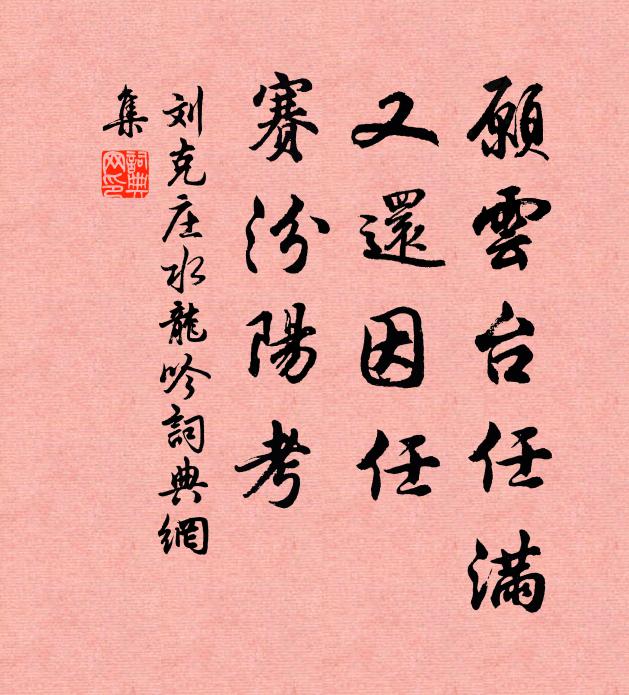 願雲台任滿
又還因任
賽汾陽考
刘克庄水龍吟詞典網
集
詞典網印